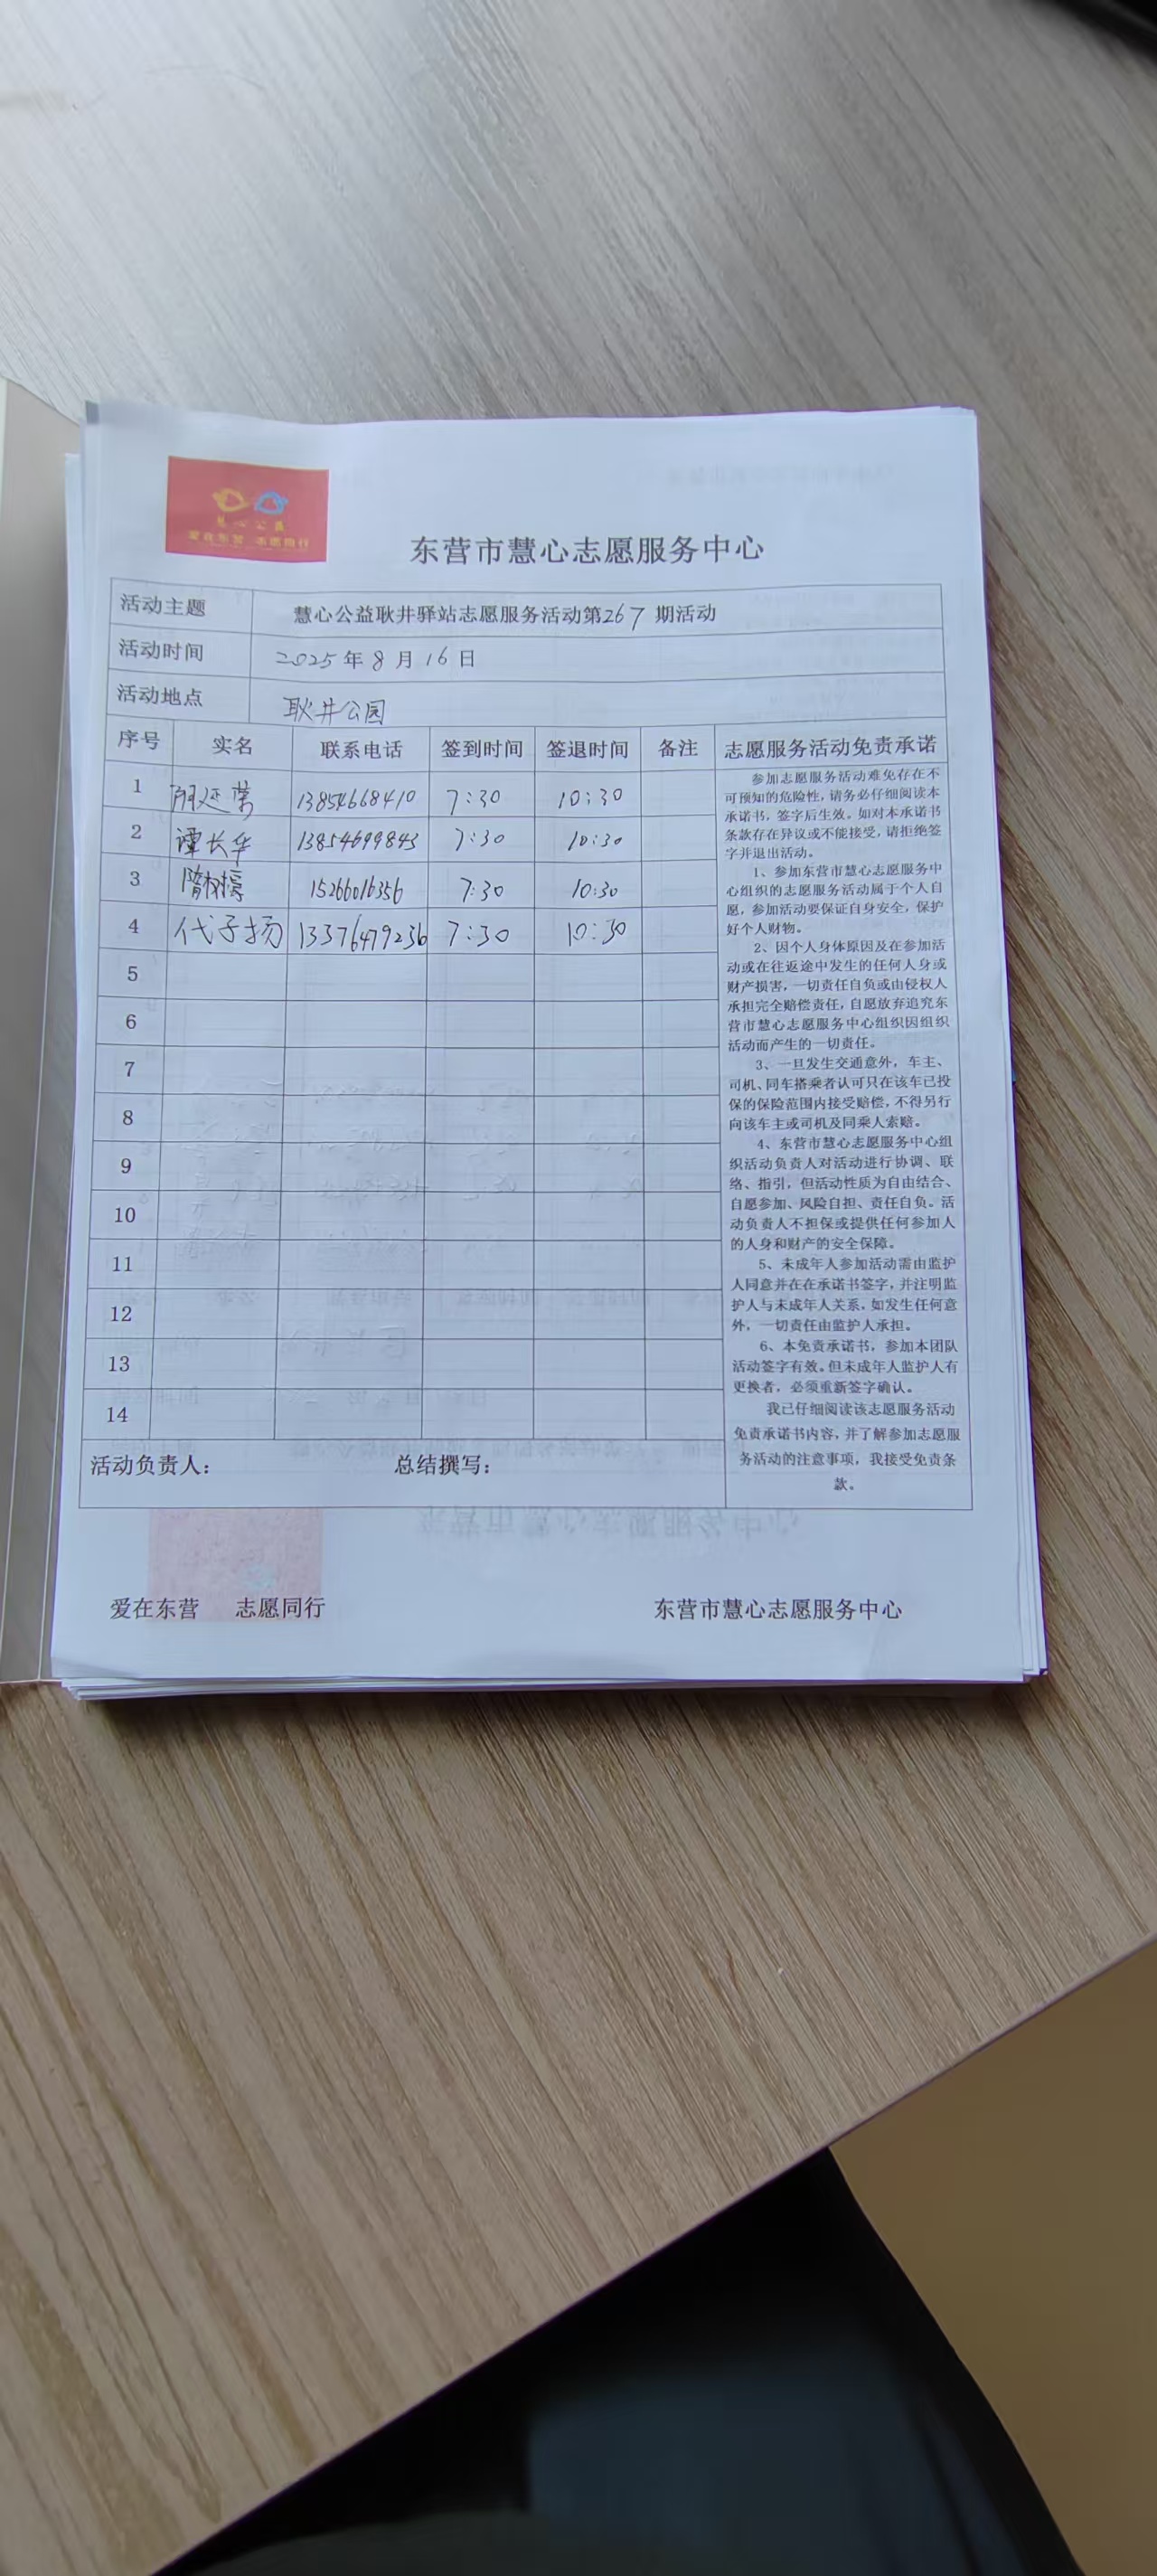 慧心公益
爱在东营 志愿同行
东营市慧心志愿服务中心
活动主题 慧心公益耿井驿站志愿服务活动第267期活动
活动时间 2025年8月16日
活动地点 耿井公园
序号 实名 联系电话 签到时间 签退时间 备注 志愿服务活动免责承诺
1 延荣 13854668410 7:30 10:30
2 谭长华 13854699843 7:30 10:30
3 隋 15266016356 7:30 10:30
4 代子扬 13376479236 7:30 10:30
5
6
7
8
9
10
11
12
13
14
参加志愿服务活动难免存在不
可预知的危险性，请务必仔细阅读本
承诺书，签字后生效。如对本承诺书
条款存在异议或不能接受，请拒绝签
字并退出活动。
1、参加东营市慧心志愿服务中
心组织的志愿服务活动属于个人自
愿，参加活动要保证自身安全，保护
好个人财物。
2、因个人身体原因及在参加活
动或在往返途中发生的任何人身或
财产损害，一切责任自负或由侵权人
承担完全赔偿责任，自愿放弃追究东
营市慧心志愿服务中心组织因组织
活动而产生的一切责任。
3、一旦发生交通意外，车主、
司机、同车搭乘者认可只在该车已投
保的保险范围内接受赔偿，不得另行
向该车主或司机及同乘人索赔。
4、东营市慧心志愿服务中心组
织活动负责人对活动进行协调、联
络、指引，但活动性质为自由结合、
自愿参加、风险自担、责任自负。活
动负责人不担保或提供任何参加人
的人身和财产的安全保障。
5、未成年人参加活动需由监护
人同意并在在承诺书签字，并注明监
护人与未成年人关系，如发生任何意
外，一切责任由监护人承担。
6、本免责承诺书，参加本团队
活动签字有效。但未成年人监护人有
更换者，必须重新签字确认。
我已仔细阅读该志愿服务活动
免责承诺书内容，并了解参加志愿服
务活动的注意事项，我接受免责条
款。
活动负责人： 总结撰写：
爱在东营 志愿同行 东营市慧心志愿服务中心